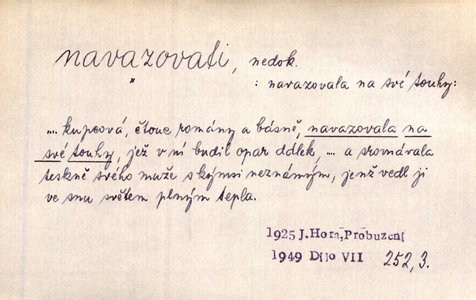 navazovati, nedok.
: navazovala na své touhy:
... kupcová, čtouc romány a básně, navazovala na
své touhy, jež v ní budil opar dálek, ... a srovnávala
teskně svého muže s kýmsi neznámým, jenž vedl ji
ve snu světem plným tepla.
1925 J.Hora,Probuzení
1949 Dílo VII 252,3.